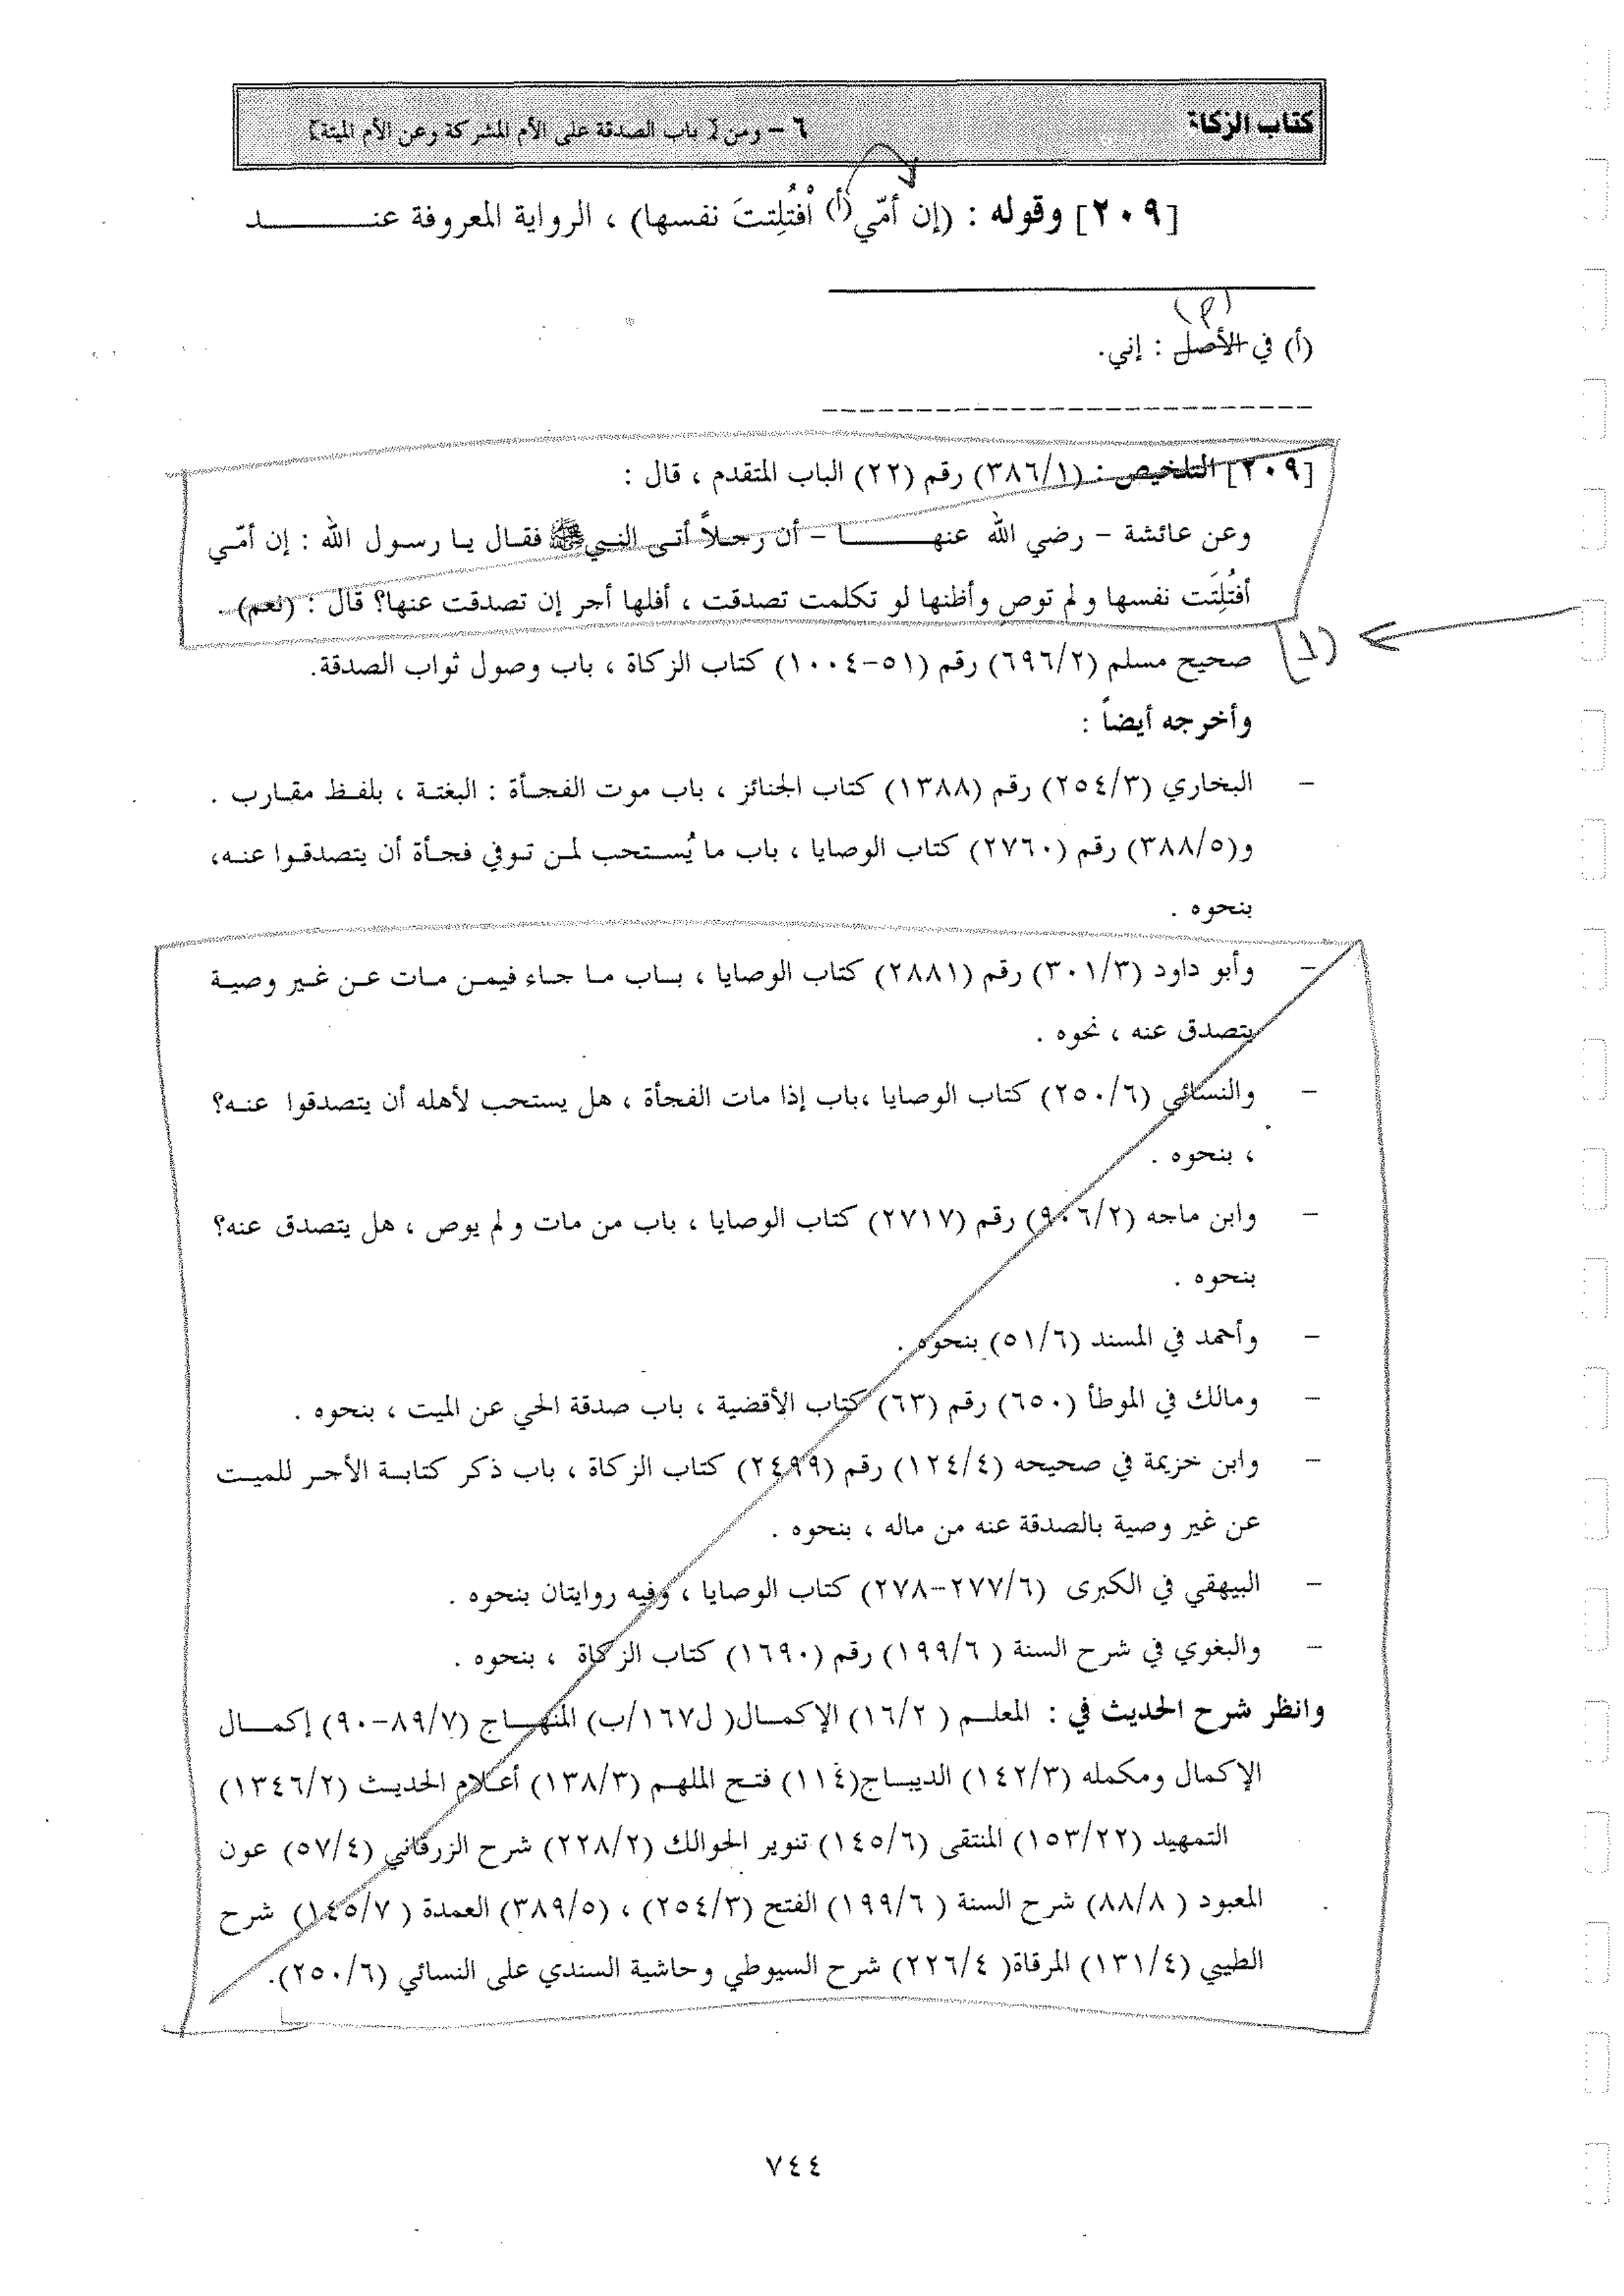 كتاب الزكاة ٦ – ومن [ باب الصدقة على الأم المشركة وعن الأم الميتة]
[٢٠٩] وقوله : (إن أمّي(أ) اْفتُلِتتَ نفسها) ، الرواية المعروفة عنـــــــــد
(م)
(أ) في الأصل : إني.
[٢٠٩] التلخيص : (٣٨٦/١) رقم (٢٢) الباب المتقدم ، قال :
وعن عائشة – رضي الله عنهـــــــا – أن رجلاً أتى النبي ﷺ فقال يا رسول الله : إن أمّي
أفتُلِتَت نفسها ولم توصِ وأظنها لو تكلمت تصدقت ، أفلها أجر إن تصدقت عنها؟ قال : (نعم) .
(١) صحيح مسلم (٦٩٦/٢) رقم (٥١-١٠٠٤) كتاب الزكاة ، باب وصول ثواب الصدقة.
وأخرجه أيضاً :
– البخاري (٢٥٤/٣) رقم (١٣٨٨) كتاب الجنائز ، باب موت الفجأة : البغتة ، بلفظ مقارب .
و(٣٨٨/٥) رقم (٢٧٦٠) كتاب الوصايا ، باب ما يُستحب لمن توفي فجأة أن يتصدقوا عنه،
بنحوه .
– وأبو داود (٣٠١/٣) رقم (٢٨٨١) كتاب الوصايا ، باب ما جاء فيمن مات عن غير وصية
يتصدق عنه ، نحوه .
– والنسائي (٢٥٠/٦) كتاب الوصايا ،باب إذا مات الفجأة ، هل يستحب لأهله أن يتصدقوا عنه؟
، بنحوه .
– وابن ماجه (٩٠٦/٢) رقم (٢٧١٧) كتاب الوصايا ، باب من مات ولم يوص ، هل يتصدق عنه؟
بنحوه .
– وأحمد في المسند (٥١/٦) بنحوه .
– ومالك في الموطأ (٦٥٠) رقم (٦٣) كتاب الأقضية ، باب صدقة الحي عن الميت ، بنحوه .
– وابن خزيمة في صحيحه (١٢٤/٤) رقم (٢٤٩٩) كتاب الزكاة ، باب ذكر كتابة الأجر للميت
عن غير وصية بالصدقة عنه من ماله ، بنحوه .
– البيهقي في الكبرى (٢٧٧/٦-٢٧٨) كتاب الوصايا ، وفيه روايتان بنحوه .
– والبغوي في شرح السنة ( ١٩٩/٦) رقم (١٦٩٠) كتاب الزكاة ، بنحوه .
وانظر شرح الحديث في : المعلم ( ١٦/٢) الإكمال( ل١٦٧/ب) المنهاج (٨٩/٧-٩٠) إكمال
الإكمال ومكمله (١٤٢/٣) الديباج(١١٤) فتح الملهم (١٣٨/٣) أعلام الحديث (١٣٤٦/٢)
التمهيد (١٥٣/٢٢) المنتقى (١٤٥/٦) تنوير الحوالك (٢٢٨/٢) شرح الزرقاني (٥٧/٤) عون
المعبود ( ٨٨/٨) شرح السنة ( ١٩٩/٦) الفتح (٢٥٤/٣) ، (٣٨٩/٥) العمدة ( ١٤٥/٧) شرح
الطيبي (١٣١/٤) المرقاة( ٢٢٦/٤) شرح السيوطي وحاشية السندي على النسائي (٢٥٠/٦).
٧٤٤